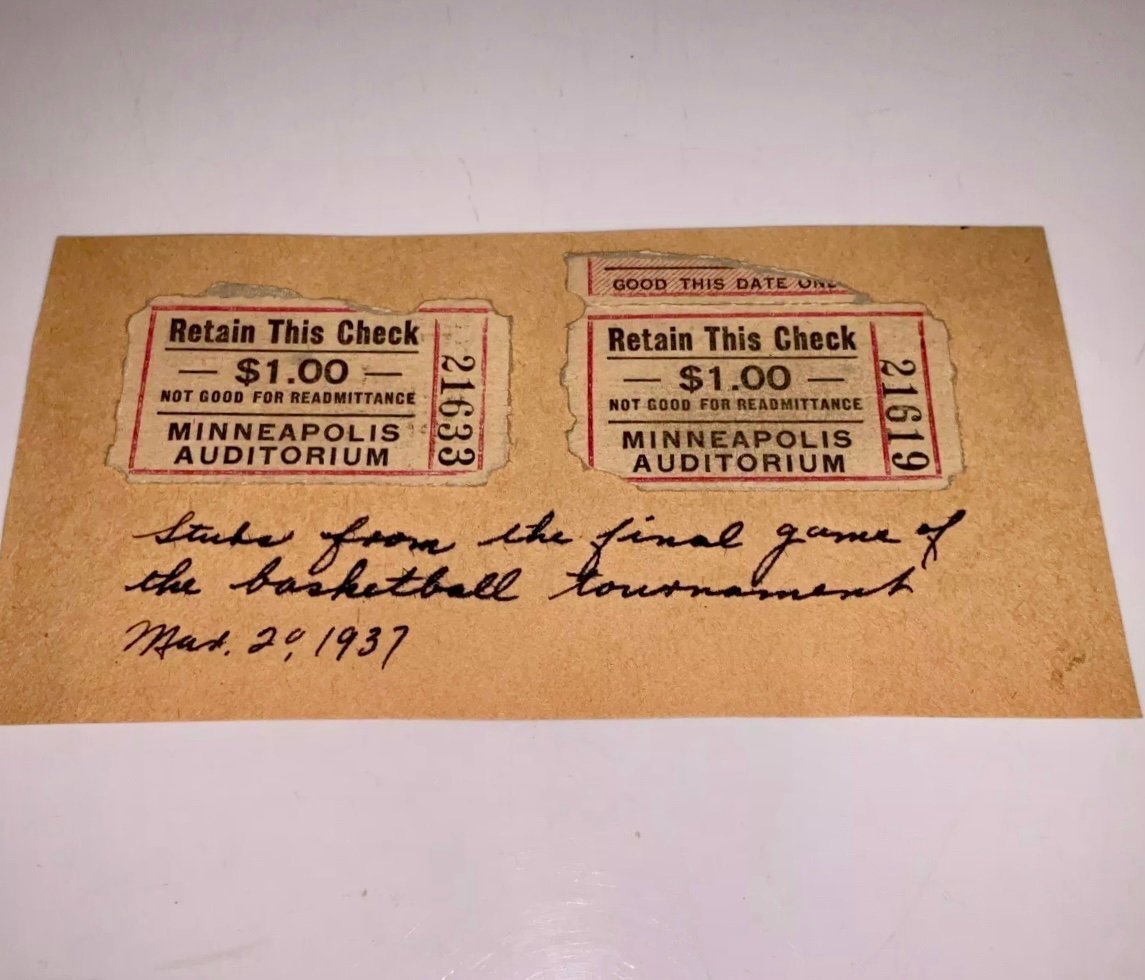 Retain This Check
— $1.00 —
NOT GOOD FOR READMITTANCE
MINNEAPOLIS
AUDITORIUM
21633
GOOD THIS DATE ONL
Retain This Check
— $1.00 —
NOT GOOD FOR READMITTANCE
MINNEAPOLIS
AUDITORIUM
21619
Stubs from the final game of
the basketball tournament
Mar. 20, 1937